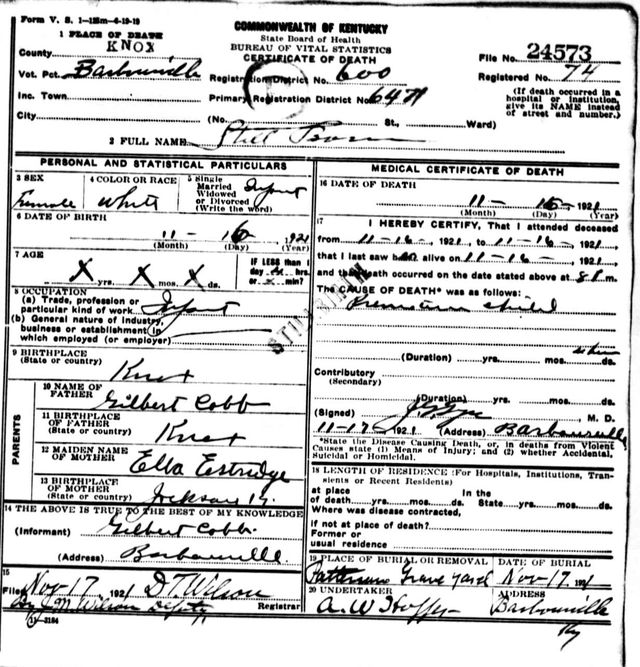 Form V. S. 1-125m-6-19-19
COMMONWEALTH OF KENTUCKY
State Board of Health
BUREAU OF VITAL STATISTICS
CERTIFICATE OF DEATH
1 PLACE OF DEATH
County KNOX
Vot. Pct. Barbourville
Inc. Town
City
Registration District No. 600
Primary Registration District No. 6471
(No. St., Ward)
File No. 24573
Registered No. 74
(If death occurred in a hospital or institution, give its NAME instead of street and number.)
2 FULL NAME
PERSONAL AND STATISTICAL PARTICULARS
3 SEX Female
4 COLOR OR RACE White
5 Single Married Widowed or Divorced (Write the word) Infant
6 DATE OF BIRTH
11 - 16, 1921
(Month) (Day) (Year)
7 AGE
X yrs. X mos. X ds.
IF LESS than 1 day hrs. or min?
8 OCCUPATION
(a) Trade, profession or particular kind of work Infant
(b) General nature of industry, business or establishment in which employed (or employer)
9 BIRTHPLACE
(State or country) Knox
PARENTS
10 NAME OF FATHER Gilbert Cobb
11 BIRTHPLACE OF FATHER (State or country) Knox
12 MAIDEN NAME OF MOTHER Ella Estridge
13 BIRTHPLACE OF MOTHER (State or country) Jackson
14 THE ABOVE IS TRUE TO THE BEST OF MY KNOWLEDGE
(Informant) Gilbert Cobb
(Address) Barbourville
15
Filed Nov-17, 1921 D T Wilson
By J M Wilson Deputy Registrar
11-3184
MEDICAL CERTIFICATE OF DEATH
16 DATE OF DEATH
11 - 16, 1921
(Month) (Day) (Year)
17 I HEREBY CERTIFY, That I attended deceased
from 11-16, 1921, to 11-16, 1921
that I last saw h alive on 11-16, 1921
and that death occurred on the date stated above at 8 P m.
The CAUSE OF DEATH* was as follows:
Premature child
STILLBIRTH
(Duration) yrs. mos. ds.
Contributory
(Secondary)
(Duration) yrs. mos. ds.
(Signed) M. D.
11-17 1921 (Address) Barbourville
*State the Disease Causing Death, or, in deaths from Violent Causes state (1) Means of Injury; and (2) whether Accidental, Suicidal or Homicidal.
18 LENGTH OF RESIDENCE (For Hospitals, Institutions, Transients or Recent Residents)
at place of death yrs. mos. ds. In the State yrs. mos. ds.
Where was disease contracted,
if not at place of death?
Former or usual residence
19 PLACE OF BURIAL OR REMOVAL Patterson Grave yard
DATE OF BURIAL Nov-17, 1921
20 UNDERTAKER A. W. Hopper
ADDRESS Barbourville
Ky